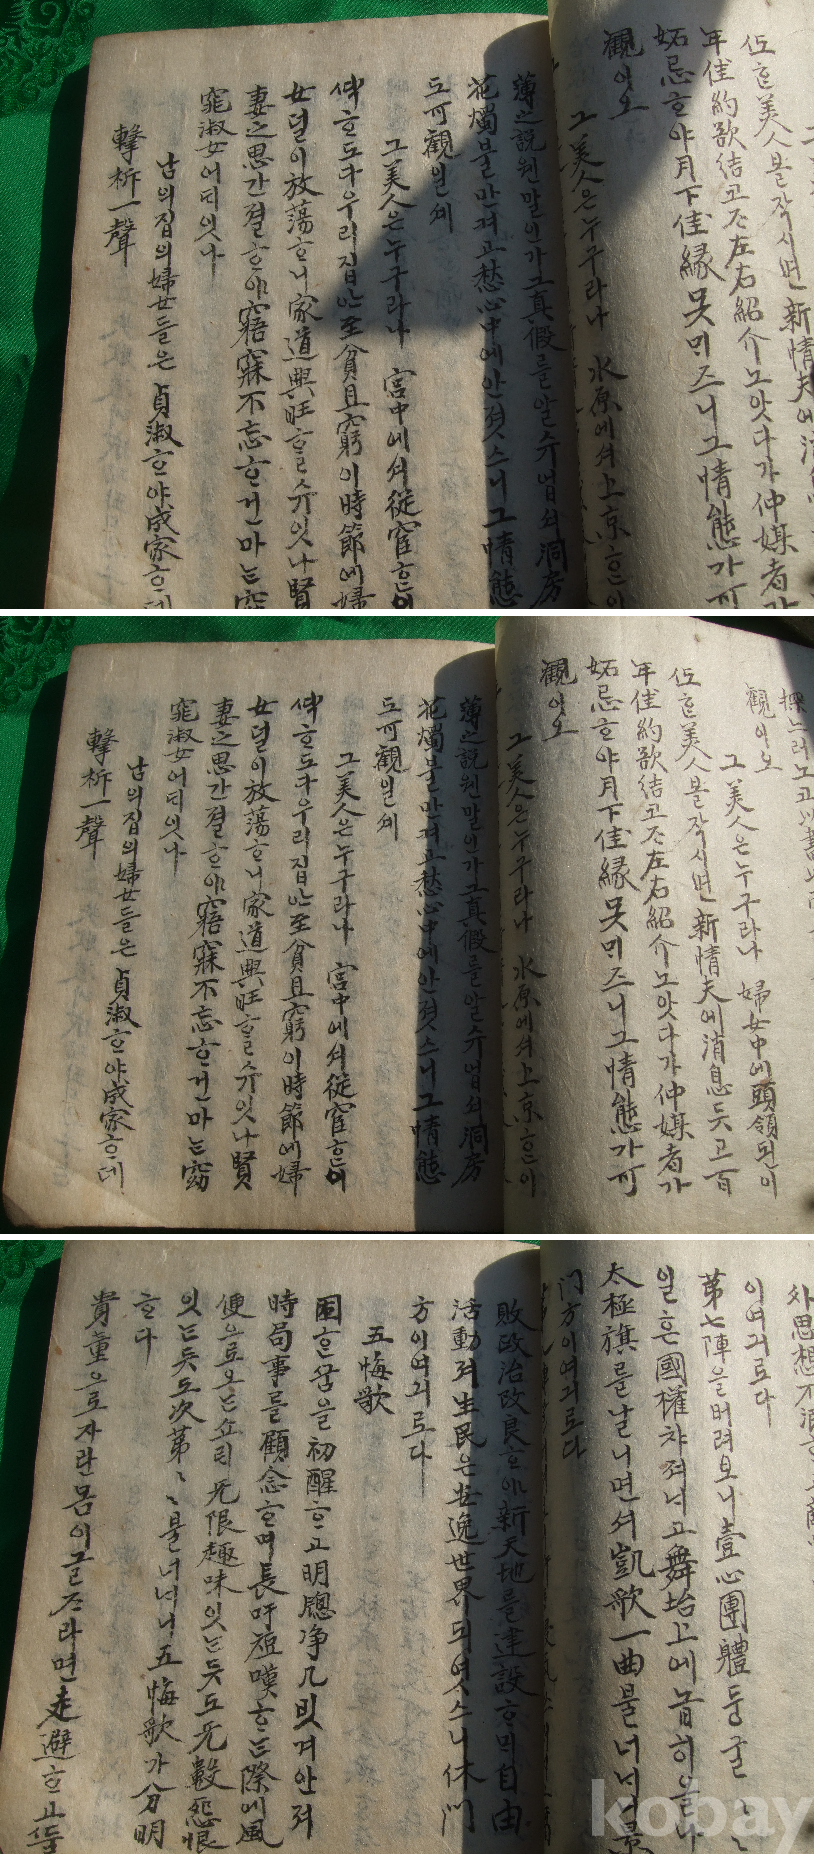 伍흔美人볼작시면新情夫에消
年佳約欲結고즈左右紹介노앗다가仲媒者가
妬忌호야月下佳緣못미즈니그情態가可
觀이오
그美人은누구라나 水原에셔上京흔이
薄之說원말인가그真假를알슈업쇠洞房
花燭불만켜고愁心中에안졋스니그情態
도可觀일셰
그美人은누구라나 宮中에셔從宦흔이
女덜이放蕩호니家道興旺홀슈잇나賢
妻之思간졀호야寤寐不忘호건마는窈
窕淑女어디잇나
擊柝一聲
남의집의婦女들은貞淑호야成家흔데
觀이오
그美人은누구라나 婦女中에頭領된이
美人볼작시면新情夫에消息듯고百
年佳約欲結고즈左右紹介노앗다가仲媒者가
妬忌호야月下佳緣못미즈니그情態가可
觀이오
그美人은누구라나 水原에셔上京흔이
薄之說원말인가그真假를알슈업쇠洞房
花燭불만켜고愁心中에안졋스니그情態
도可觀일셰
그美人은누구라나 宮中에셔從宦흔이
호도다우리집안至貧且窮이時節에婦
女덜이放蕩호니家道興旺홀슈잇나賢
妻之思간졀호야寤寐不忘호건마는窈
窕淑女어디잇나
擊柝一聲
남의집의婦女들은貞淑호야成家흔데
外思想不
이여긔로다
第七陣을버려보니壹心團體둥굴
일흔國權차져너고舞坮上에놉히올나
太極旗를날니면셔凱歌一曲불너너니景
門方이여긔로다
敗政治改良호야新天地를建設호믹自由
活動져生民은安逸世界되엿스니休門
方이여긔로다
五悔歌
困흔꿈을初醒호고明牕净几빗겨안져
時局事를顧念호며長吁短嘆호는際에風
便으로오는쇼리无限趣味잇는듯도无數怨恨
잇는듯도次第〻〻불너너니五悔歌가分明
호다
貴童으로자란몸이글즈라면走避호고
kobay